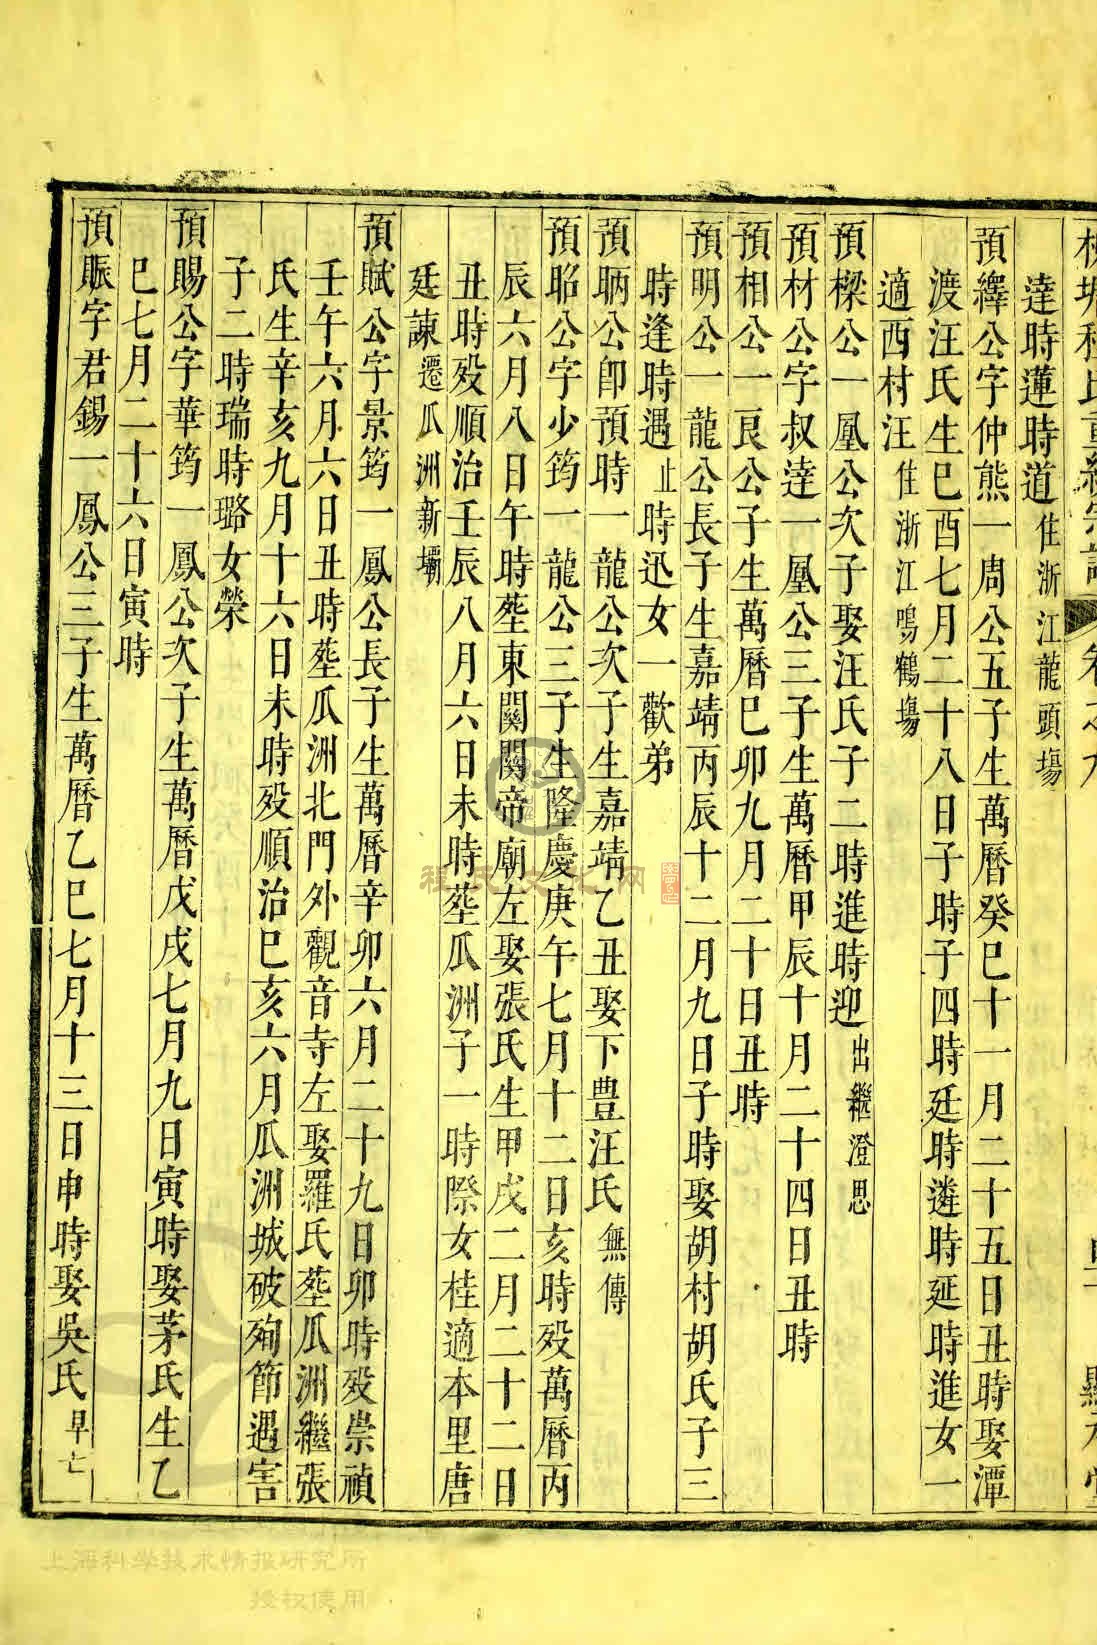 達時蓮時道住浙江龍頭塲
預繹公字仲熊一周公五子生萬曆癸巳十一月二十五日丑時娶潭
渡汪氏生巳酉七月二十八日子時子四時廷時遴時延時進女一
適西村汪住浙江鳴鶴塲
預樑公一凰公次子娶汪氏子二時進時迎出繼澄思
預材公字叔達一凰公三子生萬曆甲辰十月二十四日丑時
預相公一良公子生萬曆巳卯九月二十日丑時
預明公一龍公長子生嘉靖丙辰十二月九日子時娶胡村胡氏子三
時逢時遇止時迅女一歡弟
預昞公卽預時一龍公次子生嘉靖乙丑娶下豊汪氏無傳
預昭公字少筠一龍公三子生隆慶庚午七月十二日亥時歿萬曆丙
辰六月八日午時塟東關關帝廟左娶張氏生甲戌二月二十二日
丑時歿順治壬辰八月六日未時塟瓜洲子一時際女桂適本里唐
廷諫遷瓜洲新壩
預賦公字景筠一鳳公長子生萬曆辛卯六月二十九日卯時歿崇禎
壬午六月六日丑時塟瓜洲北門外觀音寺左娶羅氏塟瓜洲繼張
氏生辛亥九月十六日未時歿順治巳亥六月瓜洲城破殉節遇害
子二時瑞時璐女榮
預賜公字華筠一鳳公次子生萬曆戊戌七月九日寅時娶茅氏生乙
巳七月二十六日寅時
預賑字君錫一鳳公三子生萬曆乙巳七月十三日申時娶吳氏早亡
程氏文化网
上海科学技术情报研究所
授权使用